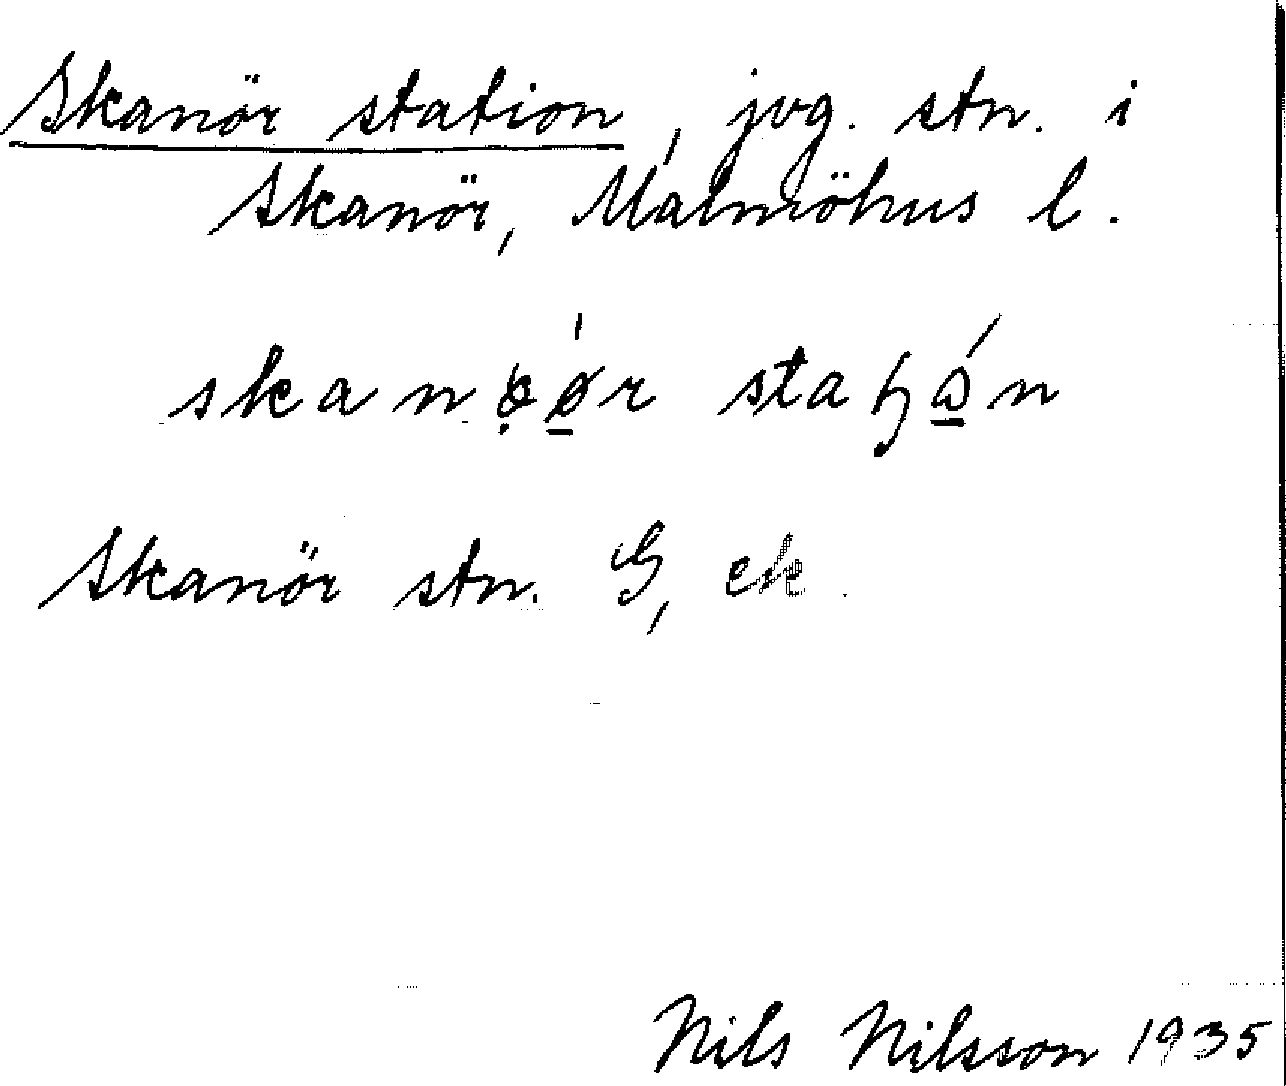 Skanör station, jvg. stn. i
Skanör, Malmöhus l.
Skanör stn. G, ek.
Nils Nilsson 1935